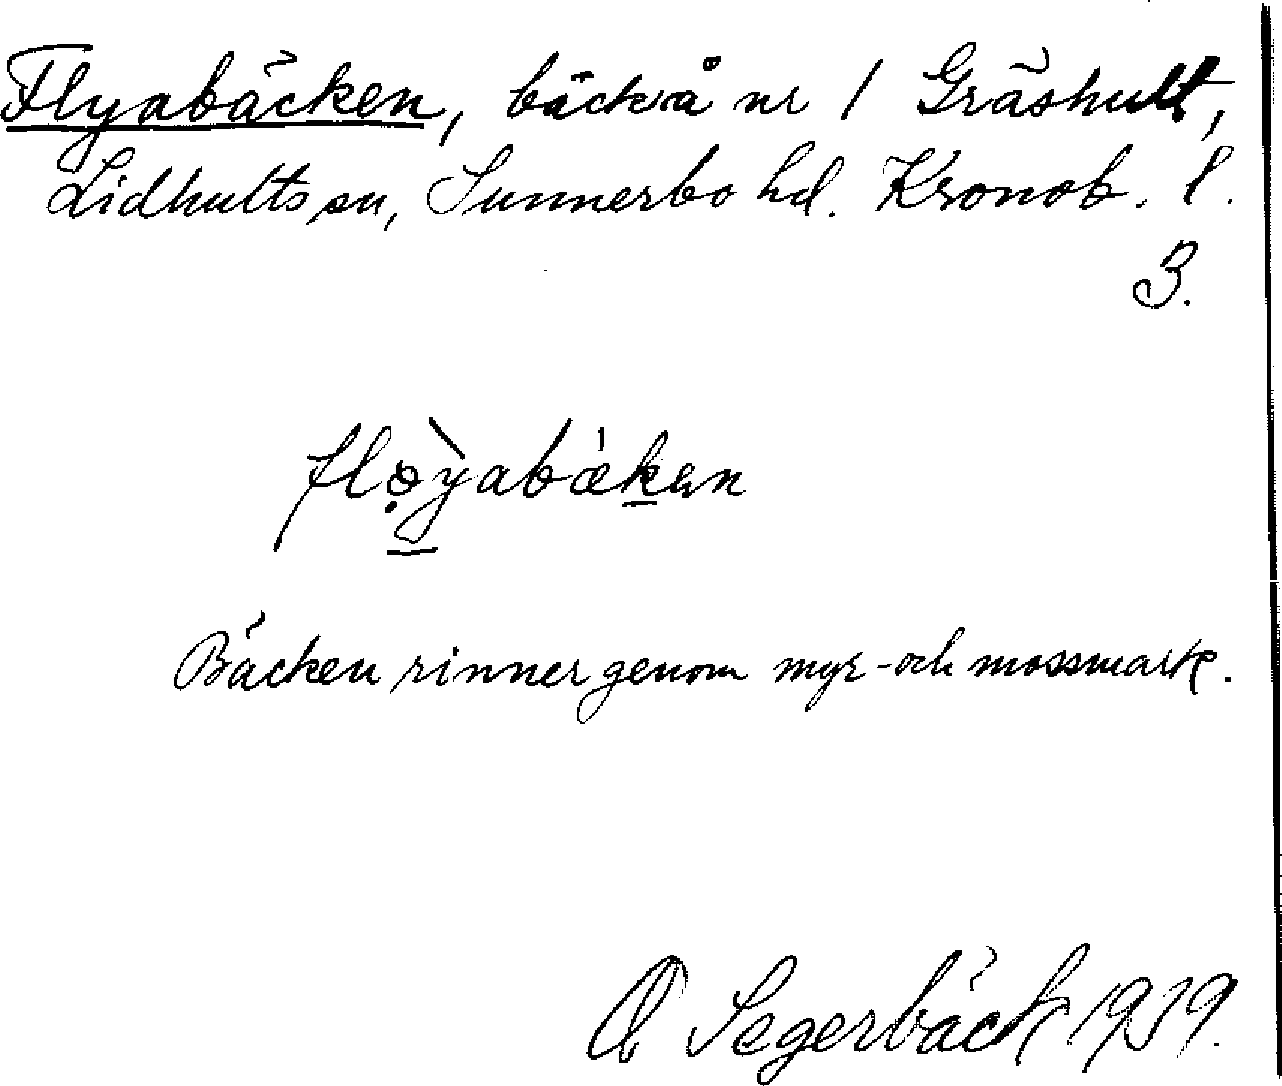 Flyabäcken, bäck å nr 1 Gräshult,
Lidhults sn, Sunnerbo hd. Kronob. l.
3.
fløyabækən
Bäcken rinner genom myr- och mossmark.
O Segerbäck 1939.